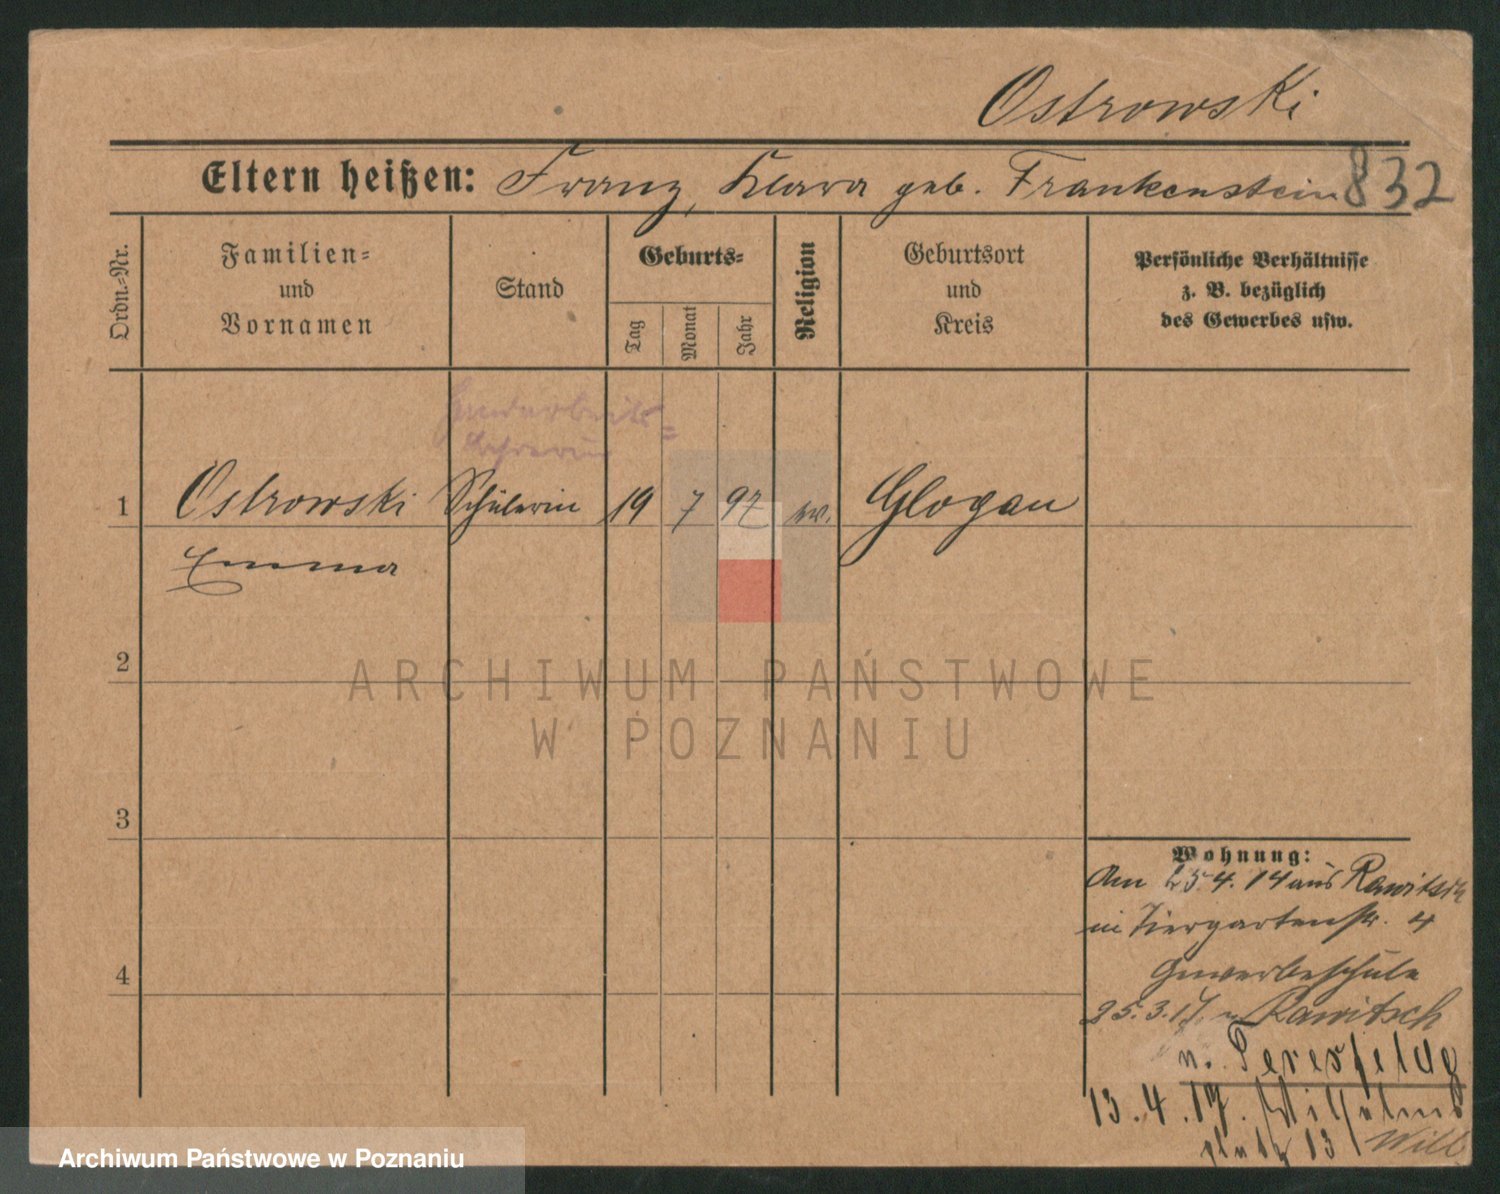 Ostrowski
Eltern heißen: Franz, Klara geb. Frankenstein 832
Ordn.-Nr.
Familien-
und
Vornamen
Stand
Geburts-
Tag
Monat
Jahr
Religion
Geburtsort
und
Kreis
Persönliche Verhältnisse
z. B. bezüglich
des Gewerbes usw.
Handarbeits-
lehrerin
1 Ostrowski Schülerin 19 7 97 ev. Glogau
Emma
2
ARCHIWUM PAŃSTWOWE
W POZNANIU
3
4
Wohnung:
Am 25.4.14 aus Rawitsch
in Tiergartenstr. 4
Gewerbeschule
25.3.17 n Rawitsch
n.
13.4.17. Wilhelms
platz 13
Archiwum Państwowe w Poznaniu